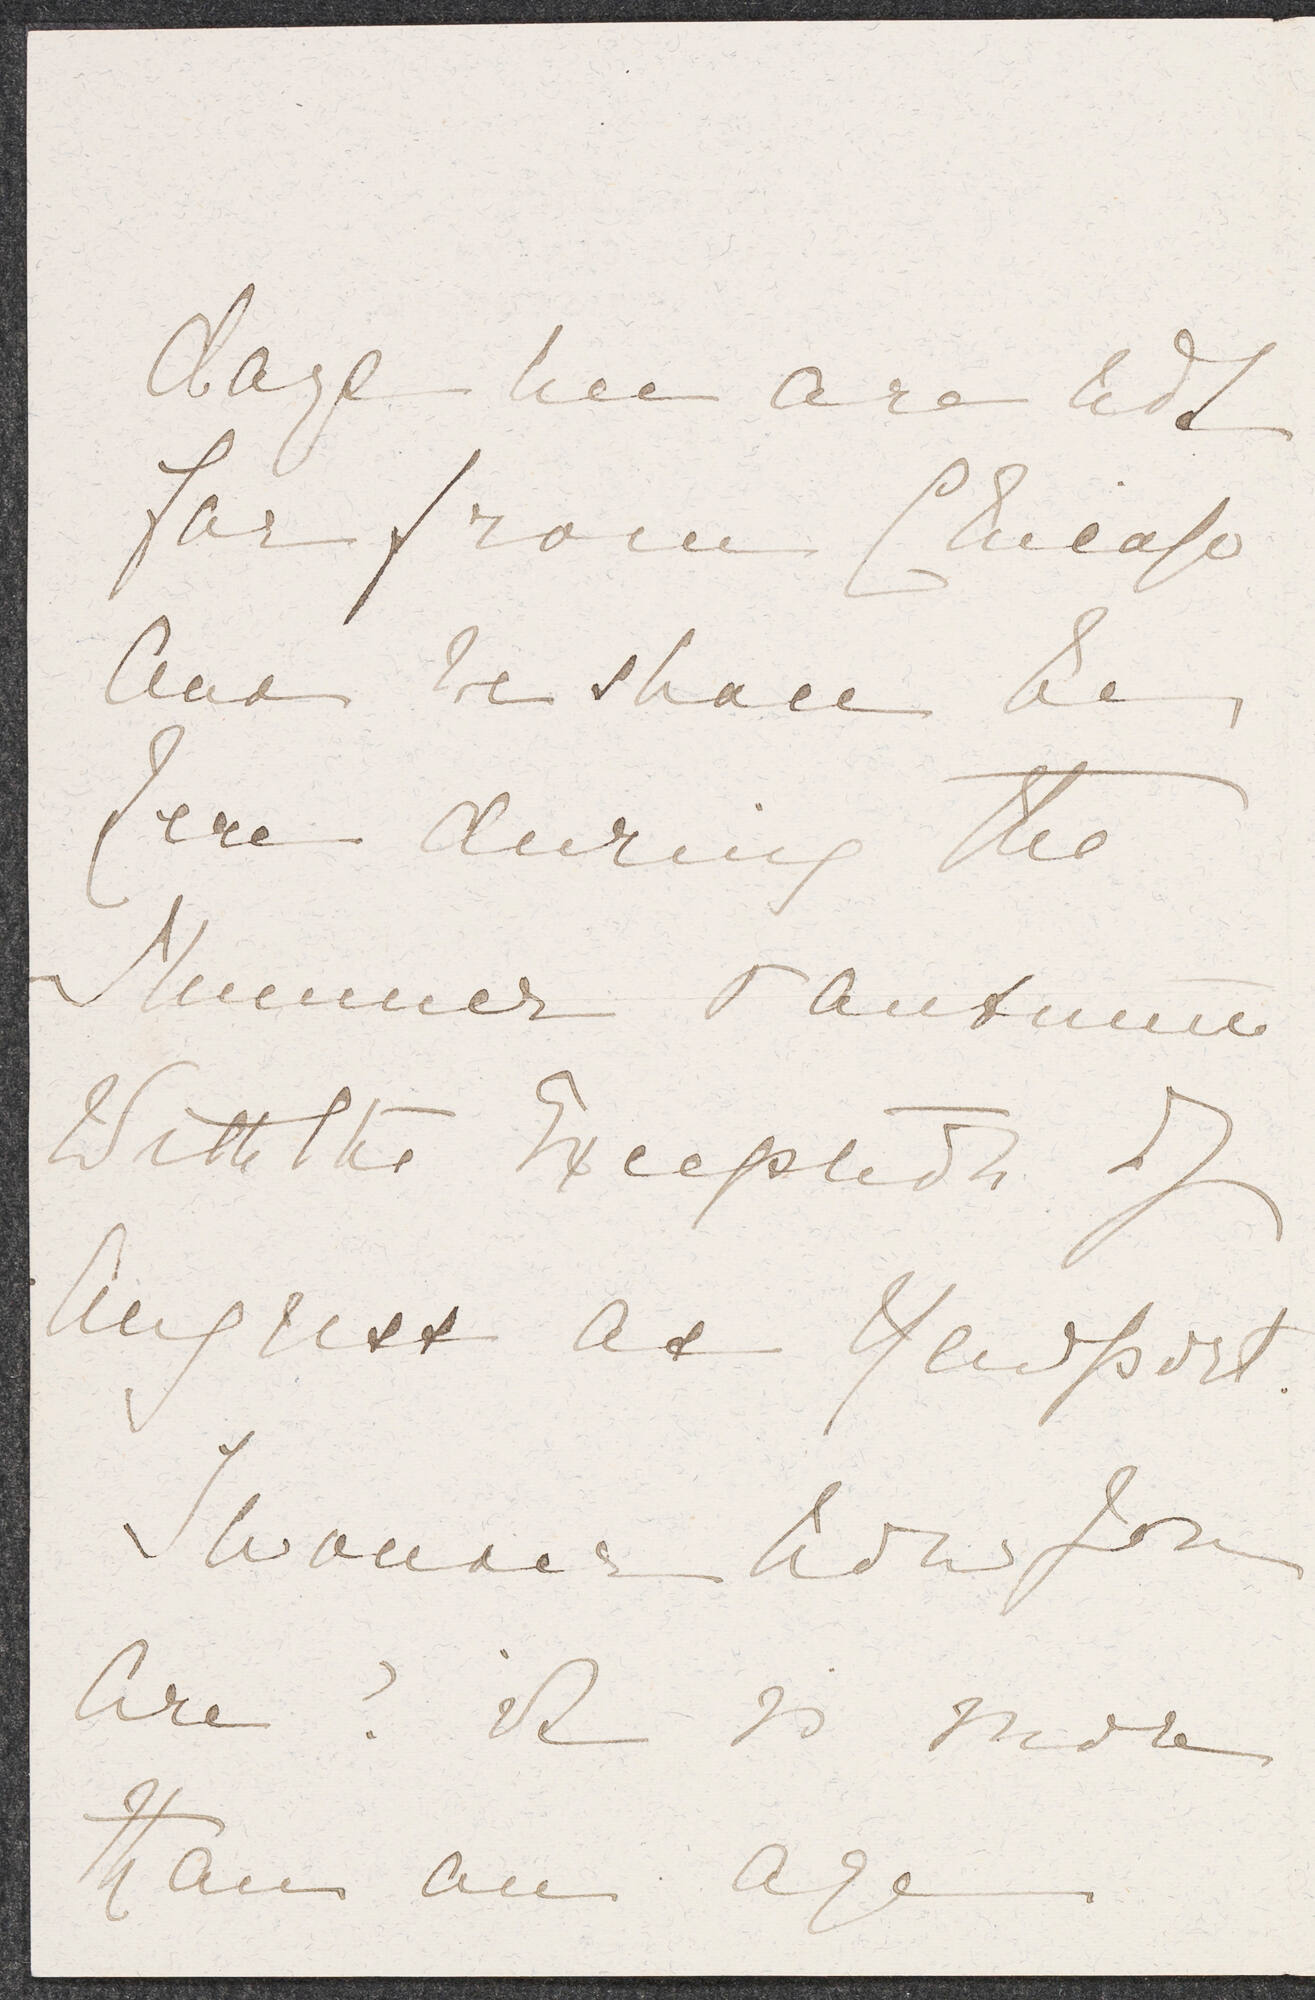 days we are not
far from Chicago
and we shall be
here during the
Summer & autumn
With the Exception of
August at Newport.
I wonder how you
are? it is more
than an age